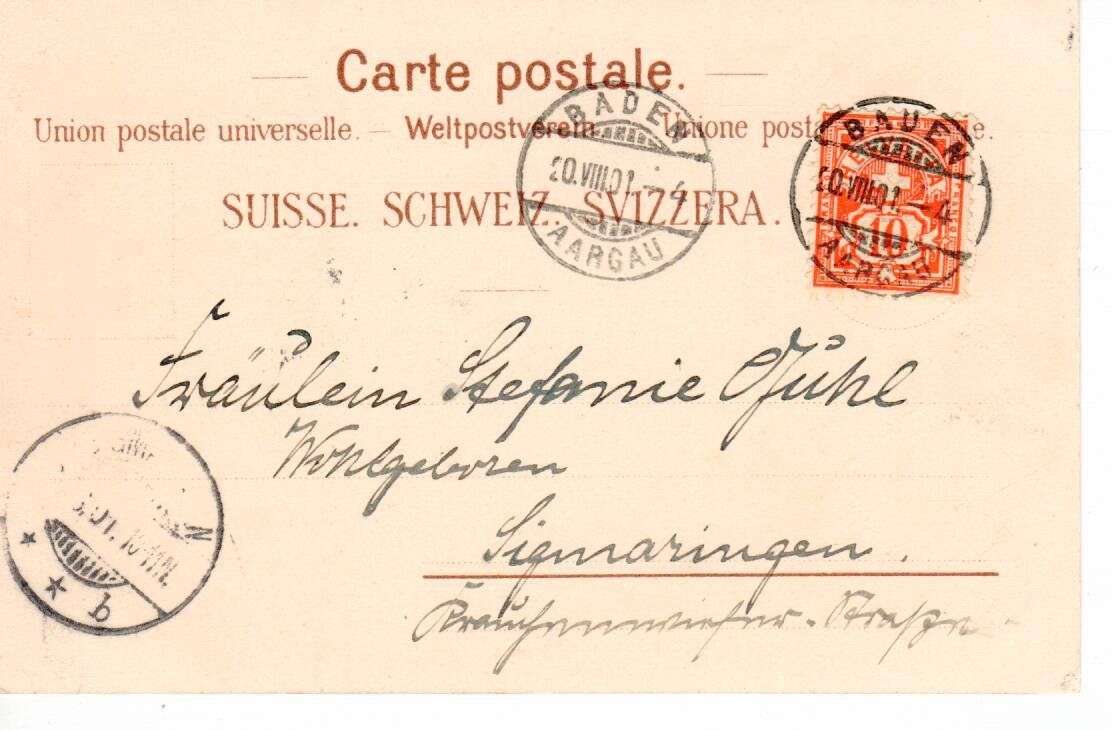 Carte postale.
Union postale universelle. — Weltpostverein. Unione posta e.
SUISSE. SCHWEIZ. SVIZZERA.
BADEN
20.VIII.01. - 4
AARGAU
BADEN
20.VIII.01. - 4
AARGAU
10
Fräulein Stefanie Guhl
Wohlgeboren
Sigmaringen.
Strasse
N
b